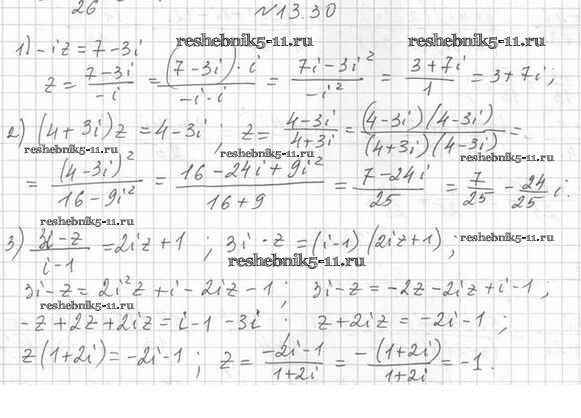 26
№13.30
reshebnik5-11.ru reshebnik5-11.ru
1) -iz = 7 - 3i
z = (7-3i)/(-i) = ((7-3i)·i)/(-i·i) = (7i-3i²)/(-i²) = (3+7i)/1 = 3+7i;
2) (4+3i)z = 4-3i ; z = (4-3i)/(4+3i) = ((4-3i)(4-3i))/((4+3i)(4-3i)) =
reshebnik5-11.ru reshebnik5-11.ru reshebnik5-11.ru
= (4-3i)²/(16-9i²) = (16-24i+9i²)/(16+9) = (7-24i)/25 = 7/25 - 24/25 i.
reshebnik5-11.ru
3) (3i-z)/(i-1) = 2iz+1 ; 3i·z = (i-1)(2iz+1) ;
reshebnik5-11.ru
reshebnik5-11.ru
3i-z = 2i²z+i-2iz-1 ; 3i-z = -2z-2iz+i-1 ;
reshebnik5-11.ru
-z+2z+2iz = i-1-3i ; z+2iz = -2i-1 ;
z(1+2i) = -2i-1 ; z = (-2i-1)/(1+2i) = (-(1+2i))/(1+2i) = -1.
reshebnik5-11.ru reshebnik5-11.ru